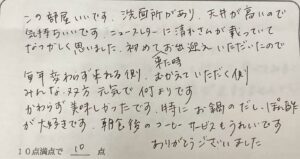 この部屋いいです。洗面所があり、天井が高いので
気持ちいいです。ニュースターに清れさんが載っていて
なつかしく思いました。初めて来た時お出迎えいただいたので
毎年変わらず来れる側、むかえていただく側
みんな双方元気で何よりです。
かわらず美味しかったです。特にお鍋のだし、ぽん酢
が大好きです。朝食後のコーヒーサービスもうれしいです
ありがとうございました
10点満点で 10 点